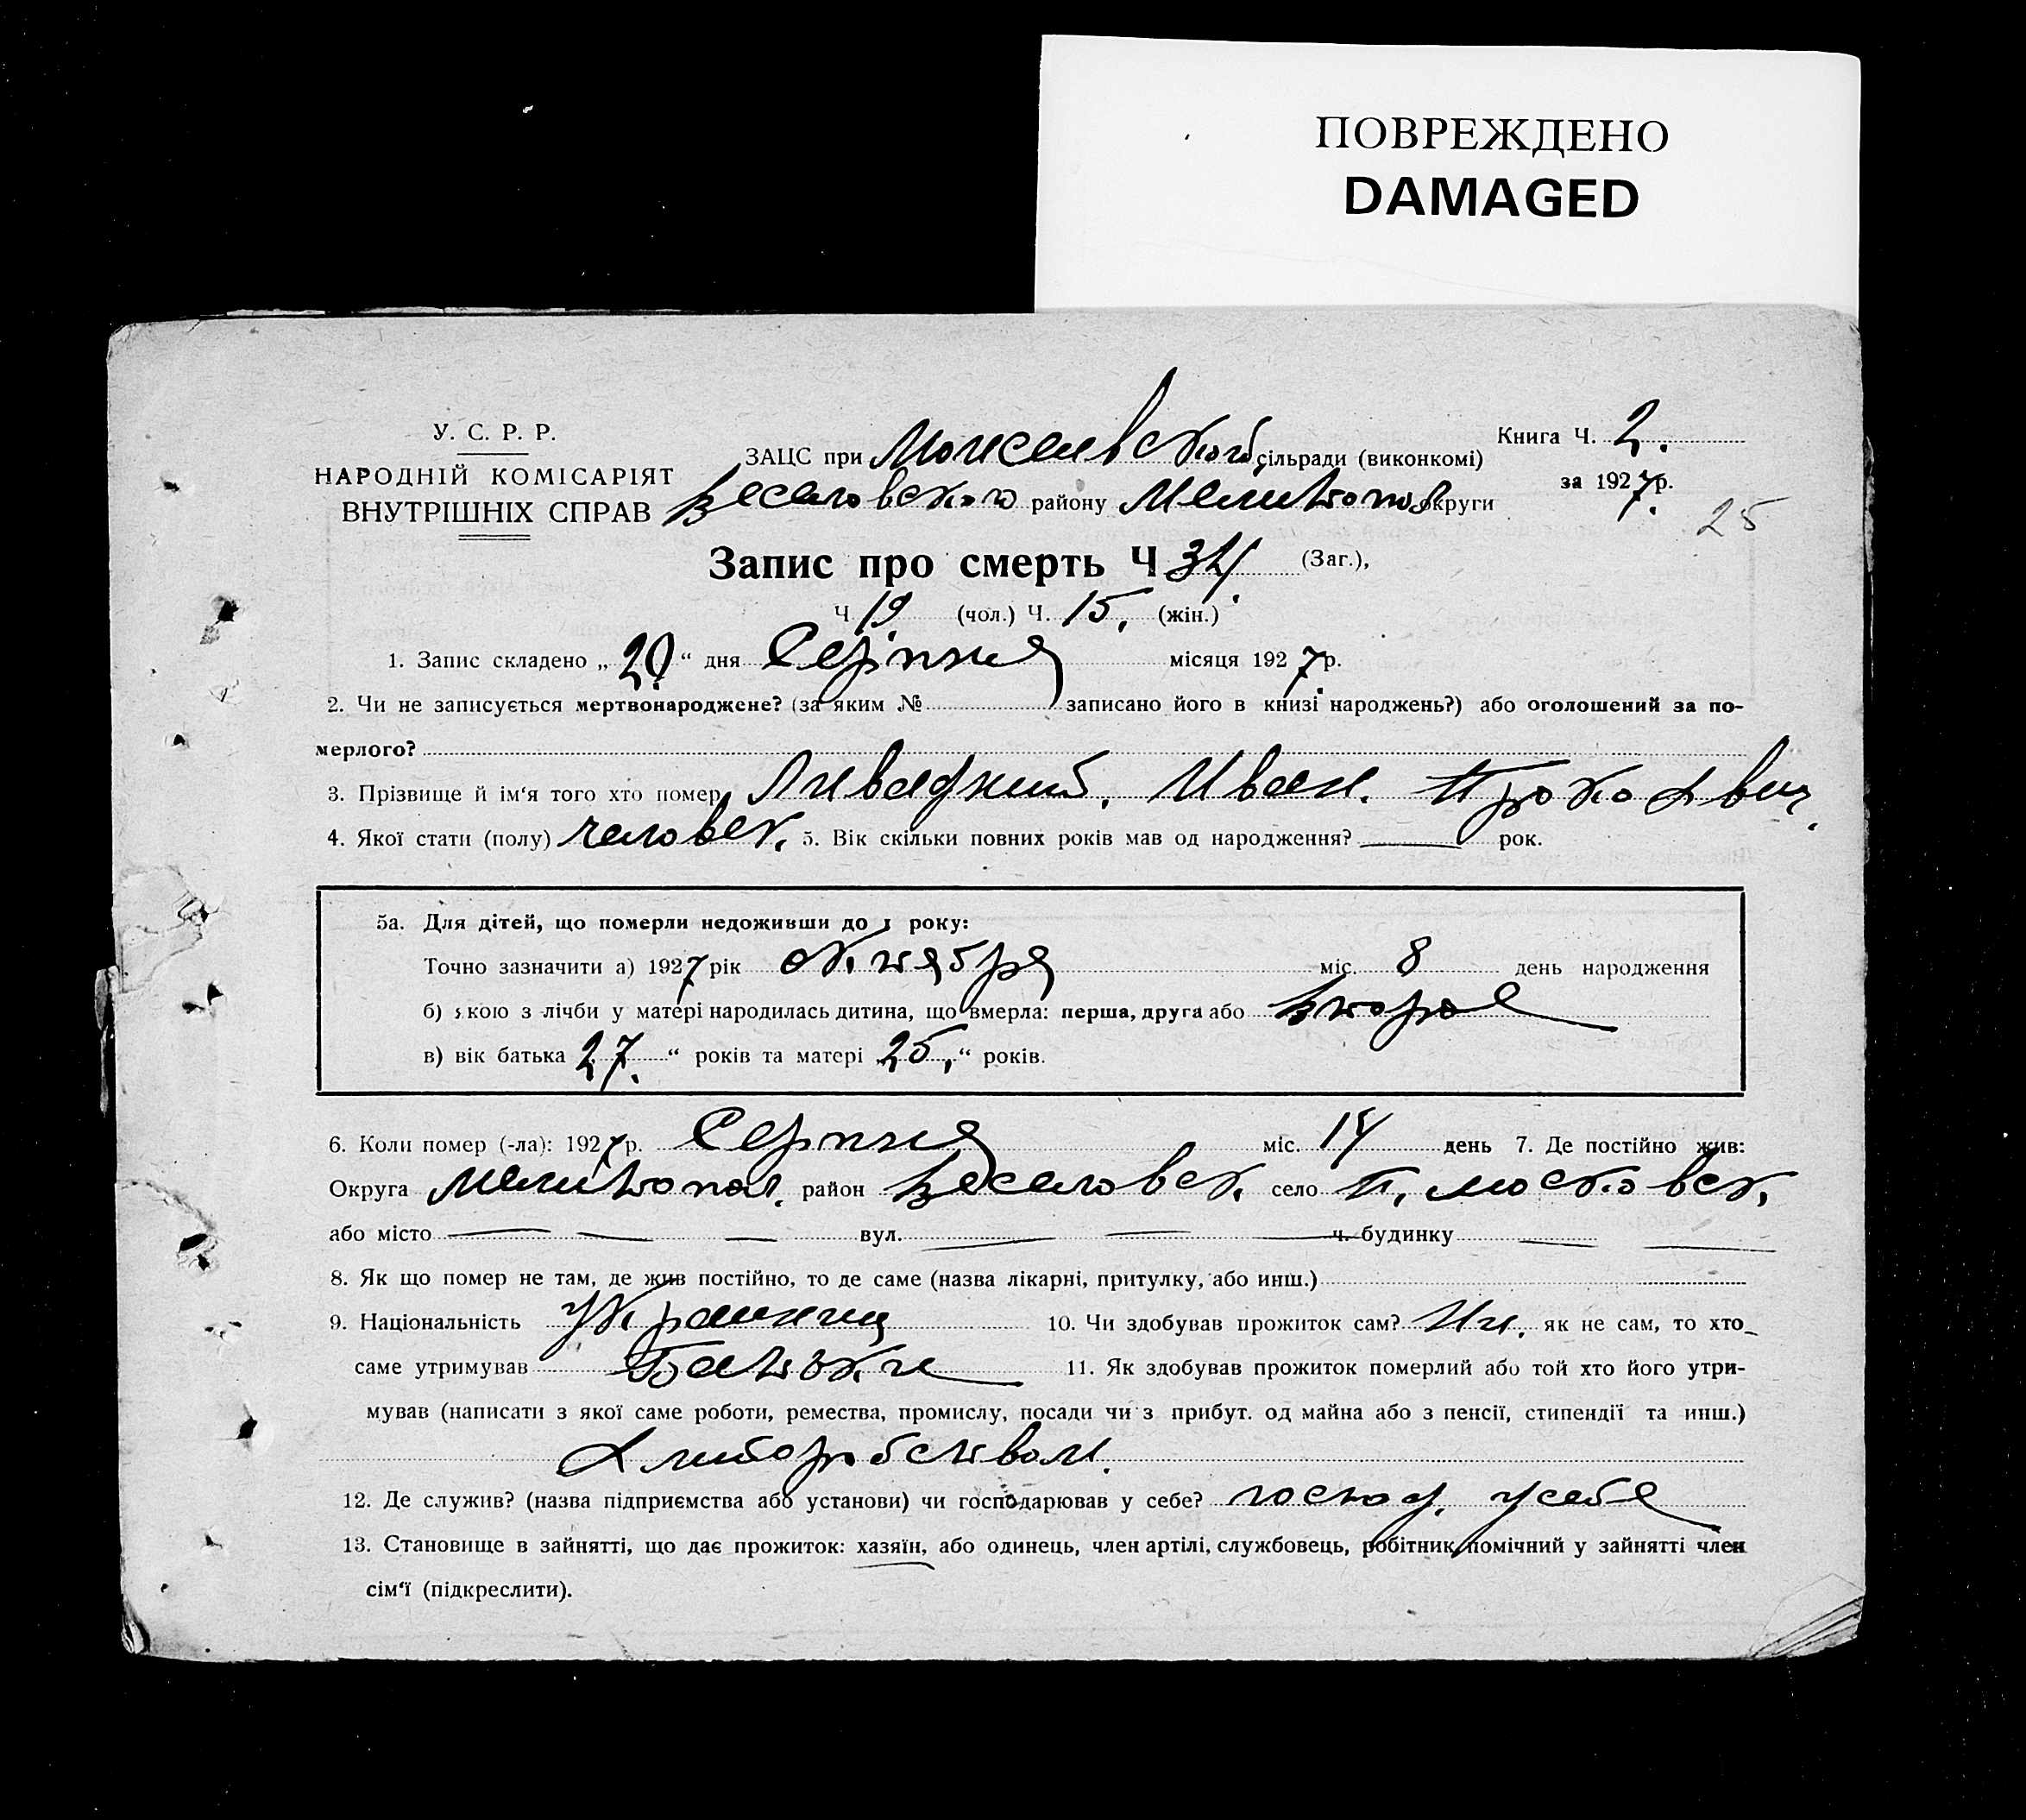 ПОВРЕЖДЕНО
DAMAGED
У. С. Р. Р.
НАРОДНІЙ КОМІСАРІЯТ
ВНУТРІШНІХ СПРАВ
ЗАЦС при сільради (виконкомі)
Веселовского району Мелитопол округи
Книга Ч. 2.
за 1927 р.
25
Запис про смерть Ч 34. (Заг.),
Ч 19 (чол.) Ч. 15. (жін.)
1. Запис складено „ 20 “ дня Серпня місяця 1927 р.
2. Чи не записується мертвонароджене? (за яким № записано його в книзі народжень?) або оголошений за по-
мерлого?
3. Прізвище й ім‘я того хто помер Ливадний. Иван.
4. Якої стати (полу) человек. 5. Вік скільки повних років мав од народження? рок.
5а. Для дітей, що померли недоживши до 1 року:
Точно зазначити а) 1927 рік октября міс. 8 день народження
б) якою з лічби у матері народилась дитина, що вмерла: перша, друга або вторае
в) вік батька 27. “ років та матері 25, “ років.
6. Коли помер (-ла): 1927 р. Серпня міс. 14 день 7. Де постійно жив:
Округа Мелитопол. район Веселовск. село п. московск.
або місто — — — вул. — — — ч. будинку — —
8. Як що помер не там, де жив постійно, то де саме (назва лікарні, притулку, або инш.)
9. Національність Украинец 10. Чи здобував прожиток сам? Ни. як не сам, то хто
саме утримував Батьки 11. Як здобував прожиток померлий або той хто його утри-
мував (написати з якої саме роботи, ремества, промислу, посади чи з прибут. од майна або з пенсії, стипендії та инш.)
хлиборобством.
12. Де служив? (назва підприємства або установи) чи господарював у себе? господ. у себе
13. Становище в зайнятті, що дає прожиток: хазяїн, або одинець, член артілі, службовець, робітник, помічний у зайнятті член
сім‘ї (підкреслити).